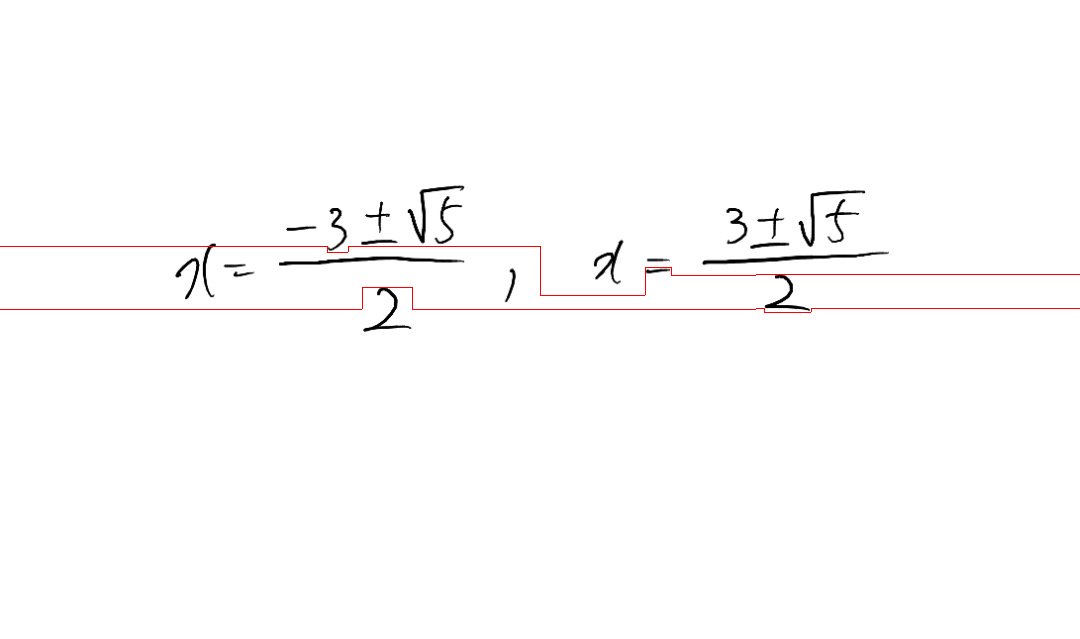 x = \frac{-3 \pm \sqrt{5}}{2} , x = \frac{3 \pm \sqrt{5}}{2}